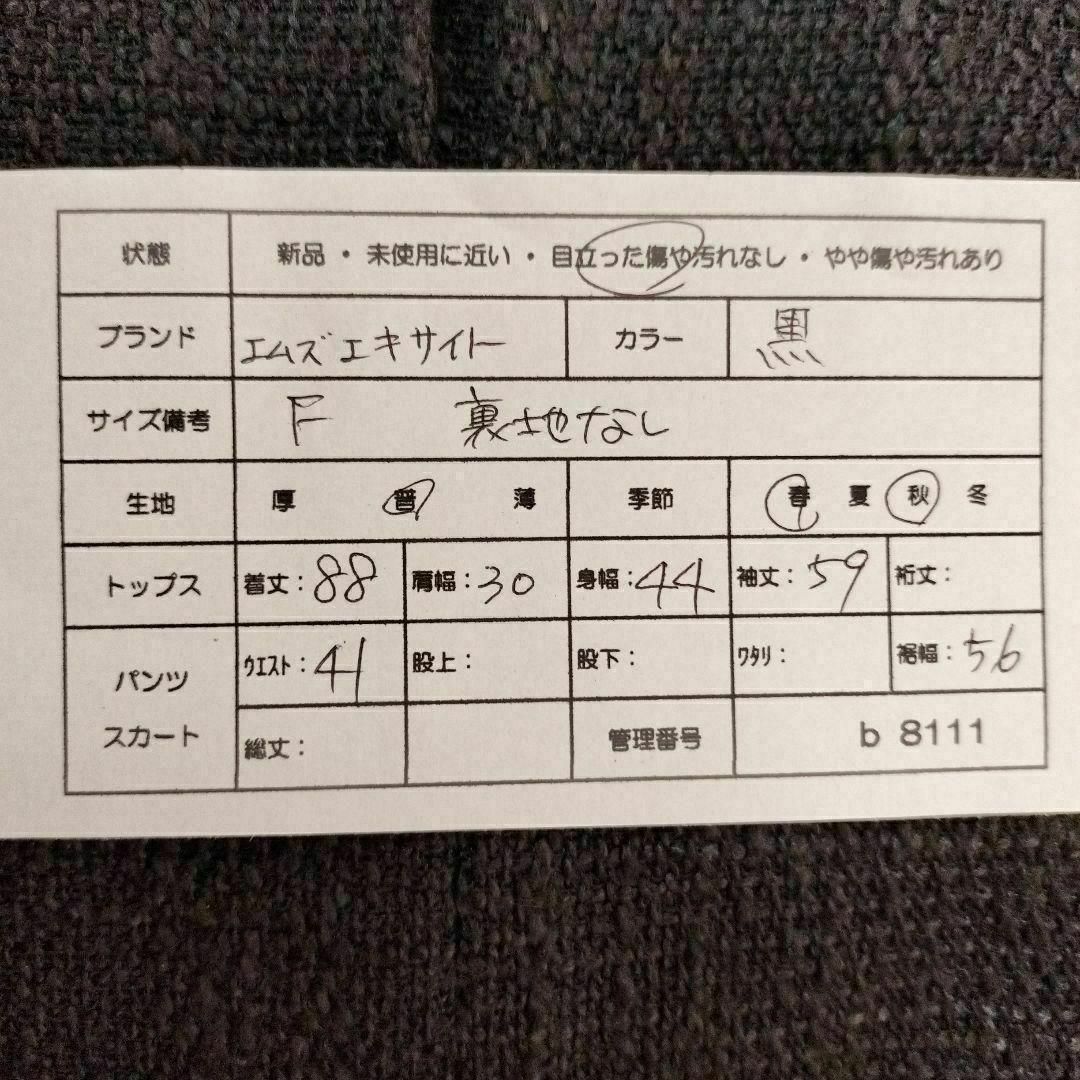 状態 新品 ・ 未使用に近い ・ 目立った傷や汚れなし ・ やや傷や汚れあり
ブランド エムズエキサイト カラー 黒
サイズ備考 F 裏地なし
生地 厚 普 薄 季節 春 夏 秋 冬
トップス 着丈：88 肩幅：30 身幅：44 袖丈：59 裄丈：
パンツ スカート ｳｴｽﾄ：41 股上： 股下： ﾜﾀﾘ： 裾幅：56
総丈： 管理番号 b 8111